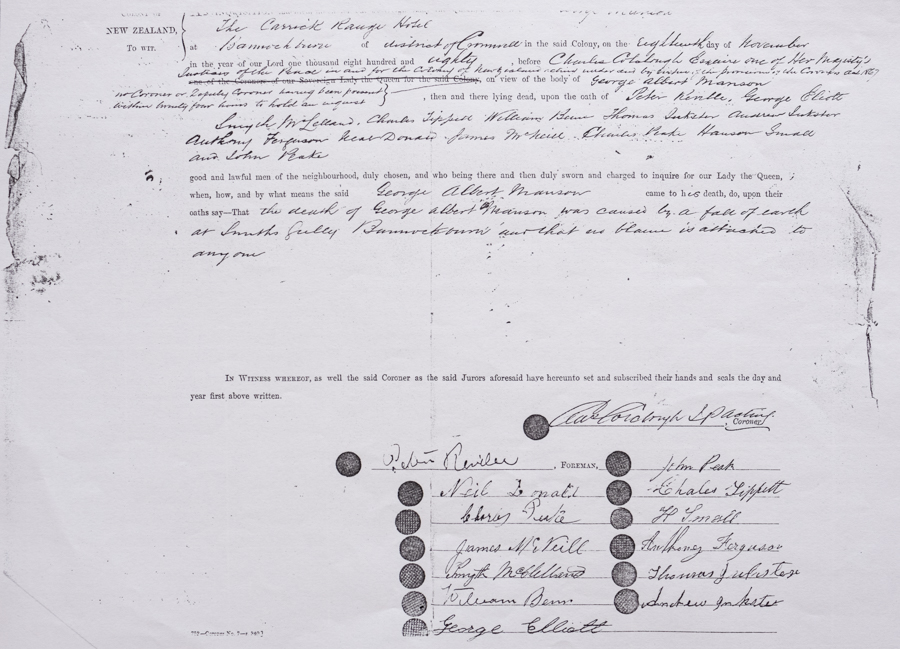 NEW ZEALAND,
TO WIT.
The Carrick Range Hotel
at Bannockburn of district of Cromwell in the said Colony, on the Eighteenth day of November
in the year of our Lord one thousand eight hundred and eighty, before Charles Colclough Esquire one of Her Majesty's
Justices of the Peace in and for the Colony of New Zealand acting under and by virtue of the provisions of the Coroners Act 1867
one of the Coroners of our Sovereign Lady the Queen for the said Colony, on view of the body of George Albert Manson
no Coroner or Deputy Coroner having been present
within twenty four hours to hold an inquest
, then and there lying dead, upon the oath of Peter Kevelle, George Eliott
Smyth McLelland, Charles Tippett William Benn Thomas Inkster Andrew Inkster
Anthony Ferguson Neal Donald James McNeill Charles Peake Hanson Small
and John Peake
good and lawful men of the neighbourhood, duly chosen, and who being there and then duly sworn and charged to inquire for our Lady the Queen,
when, how, and by what means the said George Albert Manson came to his death, do, upon their
oaths say—That the death of George Albert Manson was caused by a fall of earth
at Smiths gully Bannockburn and that no blame is attached to
any one
IN WITNESS WHEREOF, as well the said Coroner as the said Jurors aforesaid have hereunto set and subscribed their hands and seals the day and
year first above written.
Chas Colclough J P acting
Coroner
Peter , FOREMAN, John Peak
Neil Donald Charles Tippett
Charles Peake H Small
James McNeill Anthoney Ferguson
Smyth McClelland Thomas Inkster
William Benn Andrew Inkster
George Elliott